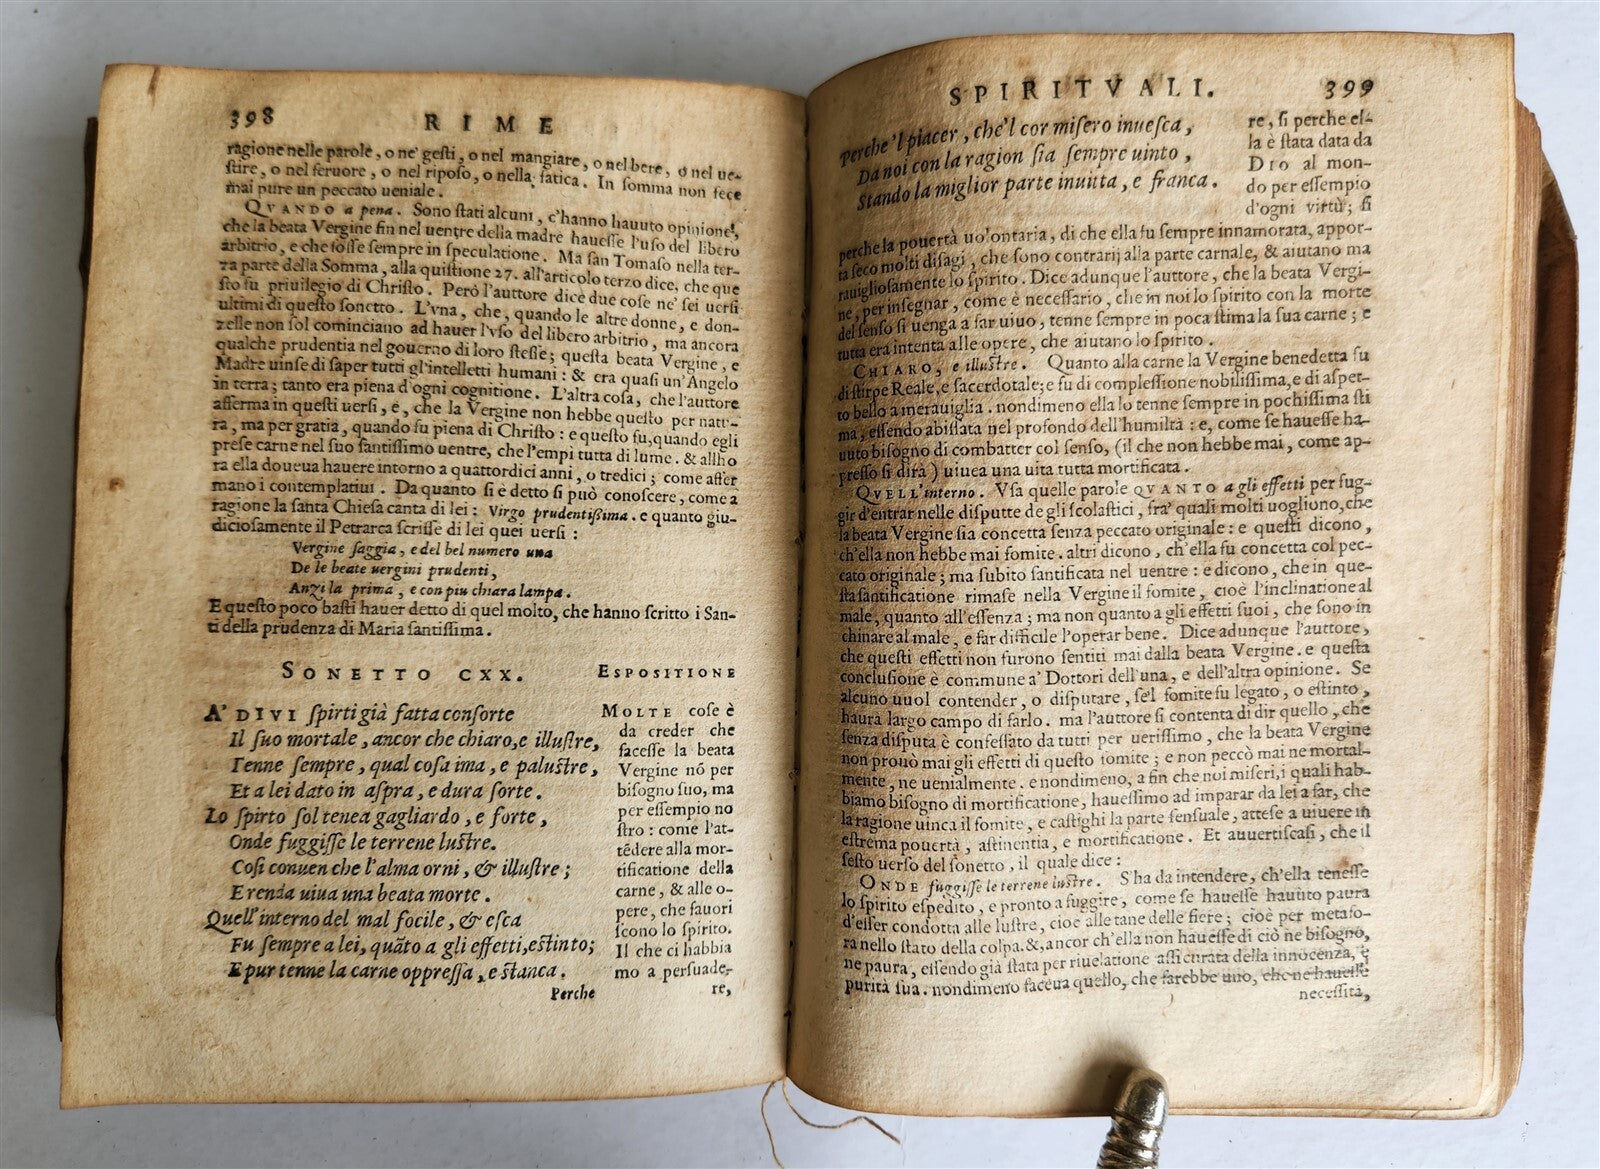 398
RIME
ragione nelle parole, o ne' gesti, o nel mangiare, o nel bere, o nel ue-
stire, o nel feruore, o nel riposo, o nella fatica. In somma non fece
mai pure un peccato ueniale.
QVANDO a pena. Sono stati alcuni, c'hanno hauuto opinione,
che la beata Vergine fin nel uentre della madre hauesse l'uso del libero
arbitrio, e che fosse sempre in speculatione. Ma san Tomaso nella ter-
za parte della Somma, alla quistione 27. all'articolo terzo dice, che que
sto fu priuilegio di Christo. Però l'auttore dice due cose ne' sei uersi
ultimi di questo sonetto. L'vna, che, quando le altre donne, e don-
zelle non sol cominciano ad hauer l'vso del libero arbitrio, ma ancora
qualche prudentia nel gouerno di loro stesse; questa beata Vergine, e
Madre uinse di saper tutti gl'intelletti humani: & era quasi un'Angelo
in terra; tanto era piena d'ogni cognitione. L'altra cosa, che l'auttore
afferma in questi uersi, e, che la Vergine non hebbe questo per natu-
ra, ma per gratia, quando fu piena di Christo: e questo fu, quando egli
prese carne nel suo santissimo uentre, che l'empi tutta di lume. & allho
ra ella doueua hauere intorno a quattordici anni, o tredici; come affer
mano i contemplatiui. Da quanto si è detto si può conoscere, come a
ragione la santa Chiesa canta di lei: Virgo prudentißima. e quanto giu-
diciosamente il Petrarca scrisse di lei quei uersi:
Vergine saggia, e del bel numero una
De le beate uergini prudenti,
Anzi la prima, e con piu chiara lampa.
E questo poco basti hauer detto di quel molto, che hanno scritto i San-
ti della prudenza di Maria santissima.
SONETTO CXX.
A' DIVI spirti già fatta consorte
Il suo mortale, ancor che chiaro, e illustre,
Tenne sempre, qual cosa ima, e palustre,
Et a lei dato in aspra, e dura sorte.
Lo spirto sol tenea gagliardo, e forte,
Onde fuggisse le terrene lustre.
Cosi conuen che l'alma orni, & illustre;
E renda uiua una beata morte.
Quell'interno del mal focile, & esca
Fu sempre a lei, quāto a gli effetti, estinto;
E pur tenne la carne oppressa, e stanca.
Perche
ESPOSITIONE
MOLTE cose è
da creder che
facesse la beata
Vergine nō per
bisogno suo, ma
per essempio no
stro: come l'at-
tēdere alla mor-
tificatione della
carne, & alle o-
pere, che fauori
scono lo spirito.
Il che ci habbia
mo a persuade-
re,
SPIRITVALI.
399
Perche'l piacer, che'l cor misero inuesca,
Da noi con la ragion sia sempre uinto,
Stando la miglior parte inuitta, e franca.
re, si perche el-
la è stata data da
DIO al mon-
do per essempio
d'ogni virtù; si
perche la pouertà uolontaria, di che ella fu sempre innamorata, appor-
ta seco molti disagi, che sono contrarij alla parte carnale, & aiutano ma
rauigliosamente lo spirito. Dice adunque l'auttore, che la beata Vergi-
ne, per insegnar, come è necessario, che in noi lo spirito con la morte
del senso si uenga a far uiuo, tenne sempre in poca stima la sua carne; e
tutta era intenta alle opere, che aiutano lo spirito.
CHIARO, e illustre. Quanto alla carne la Vergine benedetta fu
di stirpe Reale, e sacerdotale; e fu di complessione nobilissima, e di aspet-
to bello a merauiglia. nondimeno ella lo tenne sempre in pochissima sti
ma, essendo abissata nel profondo dell'humiltà: e, come se hauesse ha-
uuto bisogno di combatter col senso, (il che non hebbe mai, come ap-
presso si dirà) uiuea una uita tutta mortificata.
QVELL'interno. Vsa quelle parole QVANTO a gli effetti per fug-
gir d'entrar nelle disputte de gli scolastici, fra' quali molti uogliono, che
la beata Vergine sia concetta senza peccato originale: e questi dicono,
ch'ella non hebbe mai fomite. altri dicono, ch'ella fu concetta col pec-
cato originale; ma subito santificata nel uentre: e dicono, che in que-
sta santificatione rimase nella Vergine il fomite, cioè l'inclinatione al
male, quanto all'essenza; ma non quanto a gli effetti suoi, che sono in
chinare al male, e far difficile l'operar bene. Dice adunque l'auttore,
che questi effetti non furono sentiti mai dalla beata Vergine. e questa
conclusione è commune a' Dottori dell'una, e dell'altra opinione. Se
alcuno uuol contender, o disputare, se'l fomite fu legato, o estinto,
haurà largo campo di farlo. ma l'auttore si contenta di dir quello, che
senza disputa è confessato da tutti per uerissimo, che la beata Vergine
non prouò mai gli effetti di questo fomite; e non peccò mai ne mortal-
mente, ne uenialmente. e nondimeno, a fin che noi miseri, i quali hab-
biamo bisogno di mortificatione, hauessimo ad imparar da lei a far, che
la ragione uinca il fomite, e castighi la parte sensuale, attese a uiuere in
estrema pouertà, astinentia, e mortificatione. Et auuertiscasi, che il
sesto uerso del sonetto, il quale dice:
ONDE fuggisse le terrene lustre. S'ha da intendere, ch'ella tenesse
lo spirito espedito, e pronto a fuggire, come se hauesse hauuto paura
d'esser condotta alle lustre, cioè alle tane delle fiere; cioè per metafo-
ra nello stato della colpa. &, ancor ch'ella non hauesse di ciò ne bisogno,
ne paura, essendo già stata per riuelatione assicurata della innocenza, e
purità sua. nondimeno faceua quello, che farebbe uno, che ne hauesse
necessità,